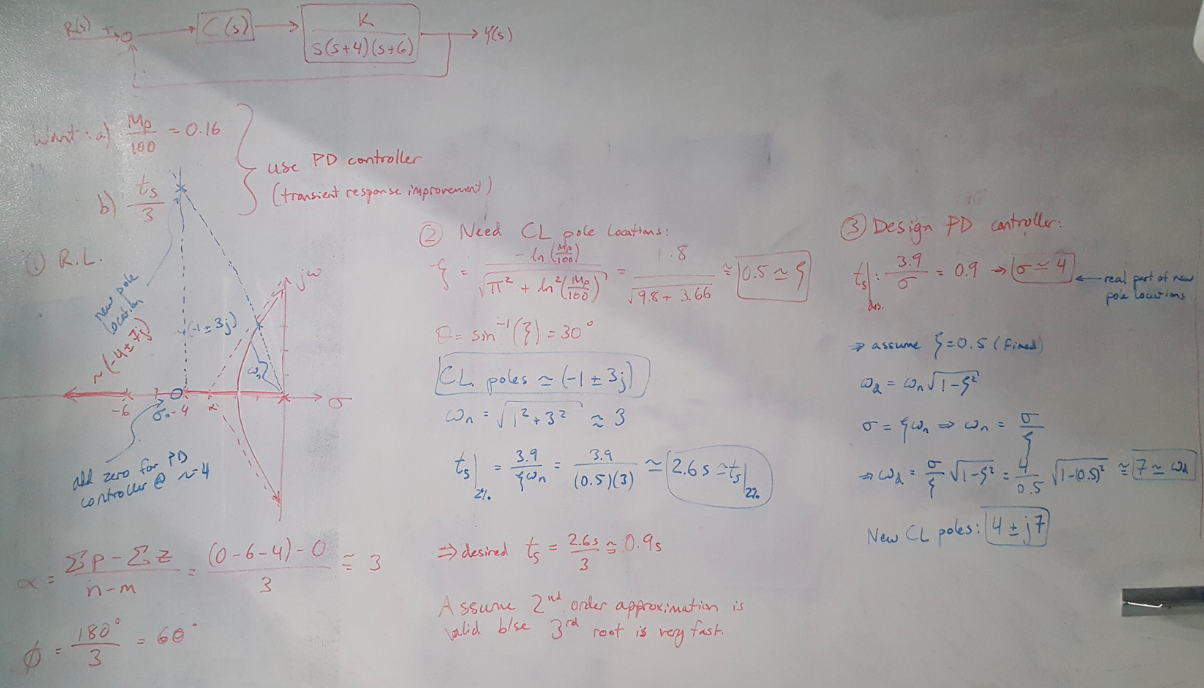 R(s) + C(s) K / s(s+4)(s+6) Y(s)
Want: a) Mp/100 = 0.16
b) ts/3
use PD controller
(transient response improvement)
① R.L.
new pole
location
~(-4±7j)
(-1±3j)
ωn
jω
σ
-6 -4 α
add zero for PD
controller @ ~-4
α = Σp - Σz / n-m = (0-6-4)-0 / 3 ≅ 3
ϕ = 180° / 3 = 60°
② Need CL pole locations:
ξ = -ln(Mp/100) / √(π² + ln²(Mp/100)) = 1.8 / √(9.8 + 3.66) ≅ 0.5 ≃ ξ
θ = sin⁻¹(ξ) = 30°
CL poles ≃ (-1 ± 3j)
ωn = √(1² + 3²) ≈ 3
ts|2% = 3.9 / ξωn = 3.9 / (0.5)(3) ≃ 2.6s ≃ ts|2%
⇒ desired ts = 2.6s / 3 ≃ 0.9s
Assume 2nd order approximation is
valid b/se 3rd root is very fast.
③ Design PD controller:
ts|des. : 3.9 / σ = 0.9 → σ ≃ 4
← real part of new
pole locations
⇒ assume ξ = 0.5 (fixed)
ωd = ωn√(1-ξ²)
σ = ξωn ⇒ ωn = σ / ξ
⇒ ωd = σ / ξ √(1-ξ²) = 4 / 0.5 √(1-(0.5)²) ≅ 7 ≃ ωd
New CL poles: 4 ± j7